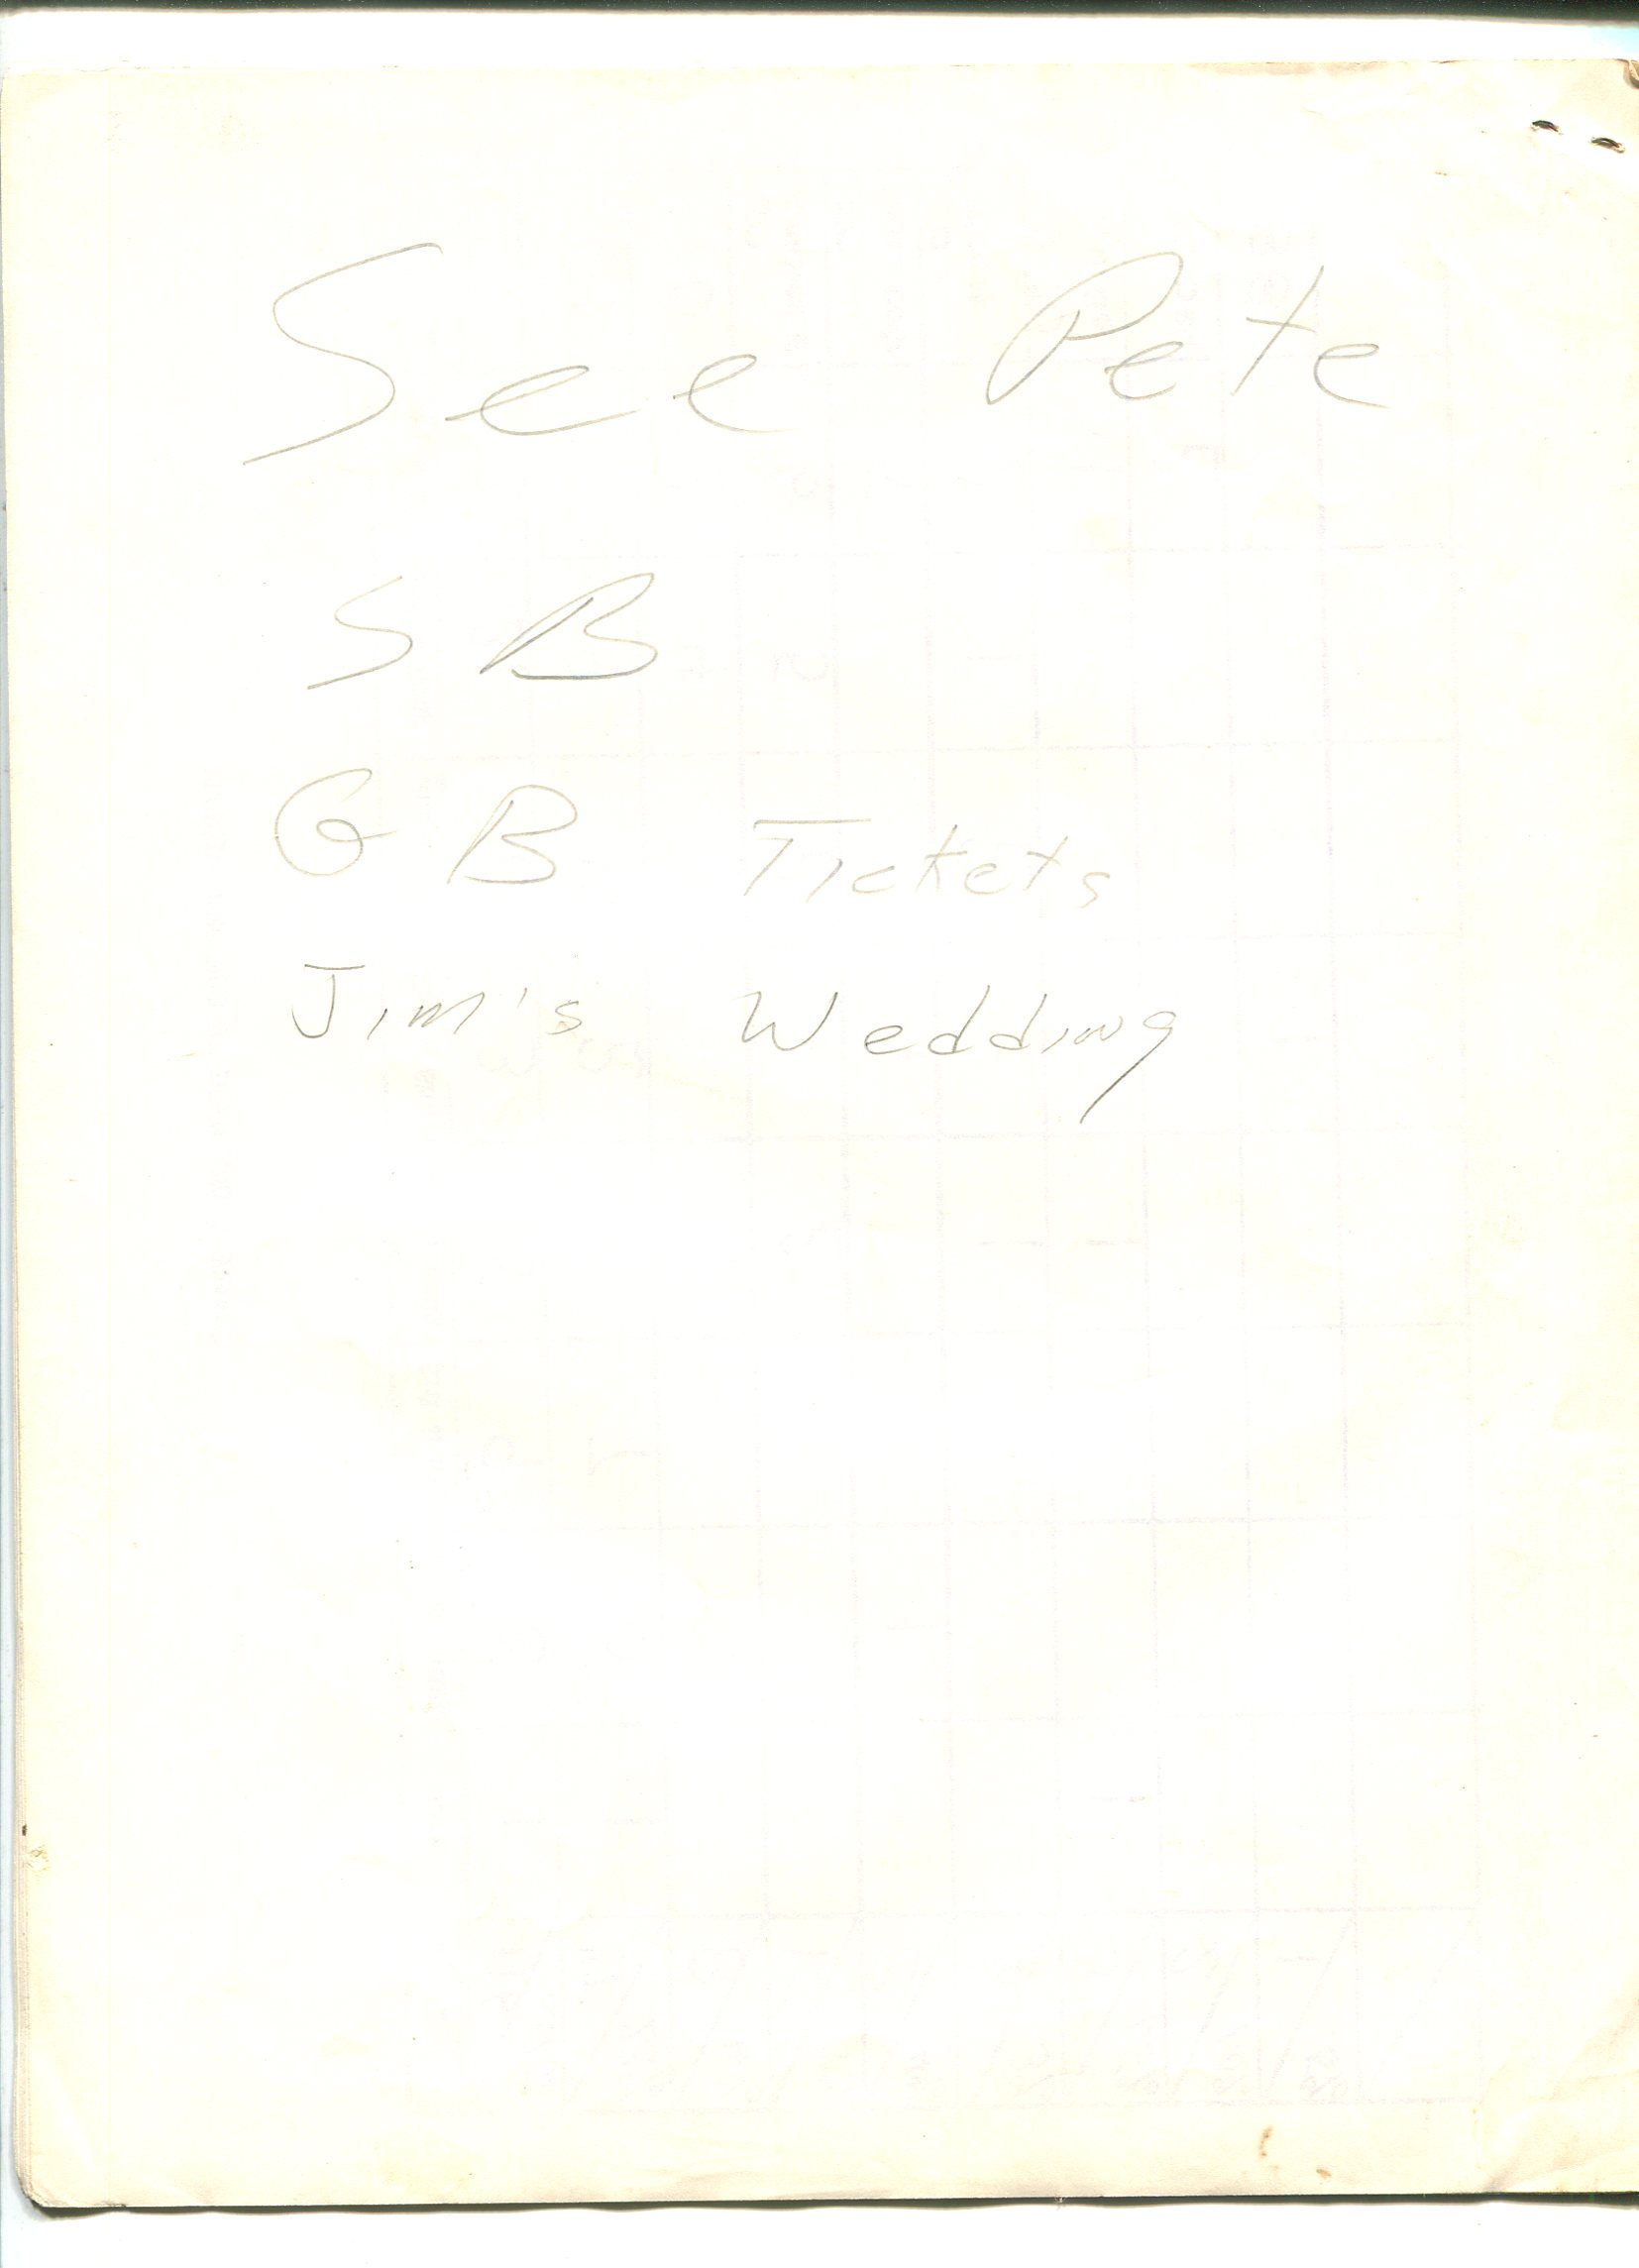 See Pete
S B
G B Tickets
Jim's Wedding